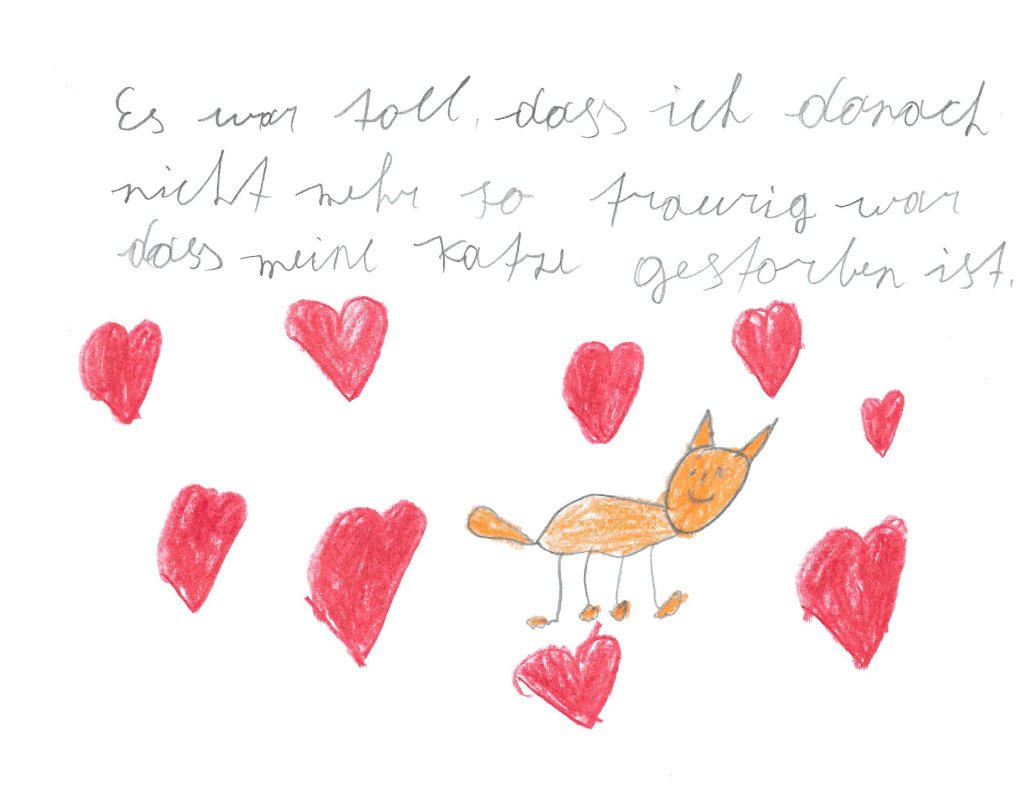 Es war toll, dass ich danach
nicht mehr so traurig war
dass meine Katze gestorben ist.